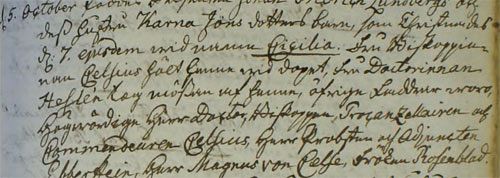 5. October födde Johan Fredrich Lundbergs och
dess hustru Karna Jöns dotters barn, som Christnades
d. 7. ejusdem med namn Cicilia. Fru Biskoppin-
nan Celsius hölt henne wid dopet, fru Doctorinnan
Hesslén tog mössan af henne, öfrige faddrar woro,
Högwördige Herr Doctor, Biskoppen, Procancellairen och
Commendeuren Celsius, Herr Probsten och Adjuncten
Herr Magnus von Celse, Fröken Rosenblad.